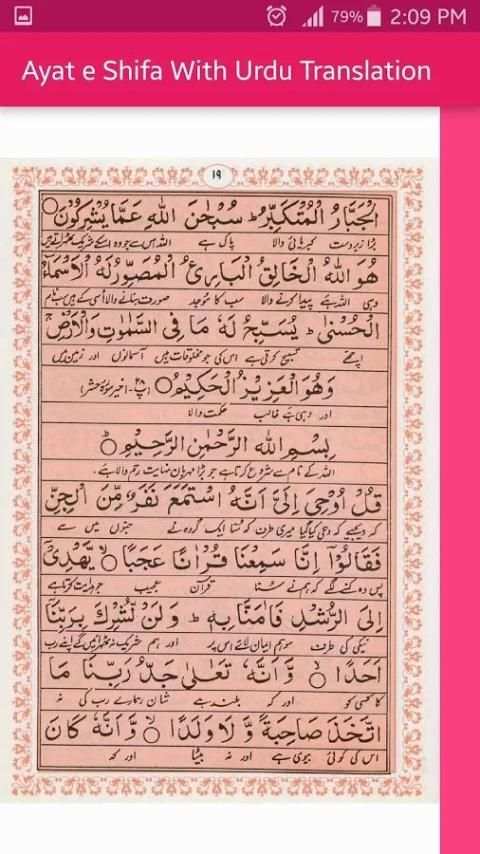 79% 2:09 PM
Ayat e Shifa With Urdu Translation
۱۹
الْجَبَّارُ الْمُتَكَبِّرُ ؕ سُبْحٰنَ اللّٰهِ عَمَّا يُشْرِكُوْنَ ○
بڑا زبردست کبریائی والا پاک ہے اللہ اس سے جو وہ اسکے شریک ٹھہراتے ہیں
هُوَ اللّٰهُ الْخَالِقُ الْبَارِئُ الْمُصَوِّرُ لَهُ الْاَسْمَآءُ
وہی اللہ ہے پیدا کرنے والا سب کا موجد صورت بنانے والا اسی کے ہیں سب نام
الْحُسْنٰى ؕ يُسَبِّحُ لَهٗ مَا فِى السَّمٰوٰتِ وَالْاَرْضِ ۚ
اچھے تسبیح کرتی ہے اس کی جو مخلوقات ہیں آسمانوں اور زمین میں
وَهُوَ الْعَزِيْزُ الْحَكِيْمُ ○ (پ۲۸- اخیر سورۂ حشر)
اور وہی ہے غالب حکمت والا
بِسْمِ اللّٰهِ الرَّحْمٰنِ الرَّحِيْمِ ○
اللہ کے نام سے شروع کرتا ہے جو بڑا مہربان نہایت رحم والا ہے۔
قُلْ اُوْحِىَ اِلَىَّ اَنَّهُ اسْتَمَعَ نَفَرٌ مِّنَ الْجِنِّ
کہ دیجیے کہ وحی کیا گیا میری طرف کہ سُنا ایک گروہ نے جنوں میں سے
فَقَالُوْٓا اِنَّا سَمِعْنَا قُرْاٰنًا عَجَبًا ○ يَّهْدِىْٓ
پس وہ کہنے لگے کہ ہم نے سُنا قرآن عجیب جو ہدایت کرتا ہے
اِلَى الرُّشْدِ فَاٰمَنَّا بِهٖ ؕ وَلَنْ نُّشْرِكَ بِرَبِّنَآ
نیکی کی طرف سو ہم ایمان لائے اس پر اور ہم شریک نہ ٹھہرائیں گے اپنے رب
اَحَدًا ○ وَّاَنَّهٗ تَعٰلٰى جَدُّ رَبِّنَا مَا
کا کسی کو اور کہ بلند ہے شان ہمارے رب کی نہ
اتَّخَذَ صَاحِبَةً وَّلَا وَلَدًا ○ وَّاَنَّهٗ كَانَ
اس کی کوئی بیوی ہے اور نہ بیٹا اور کہ